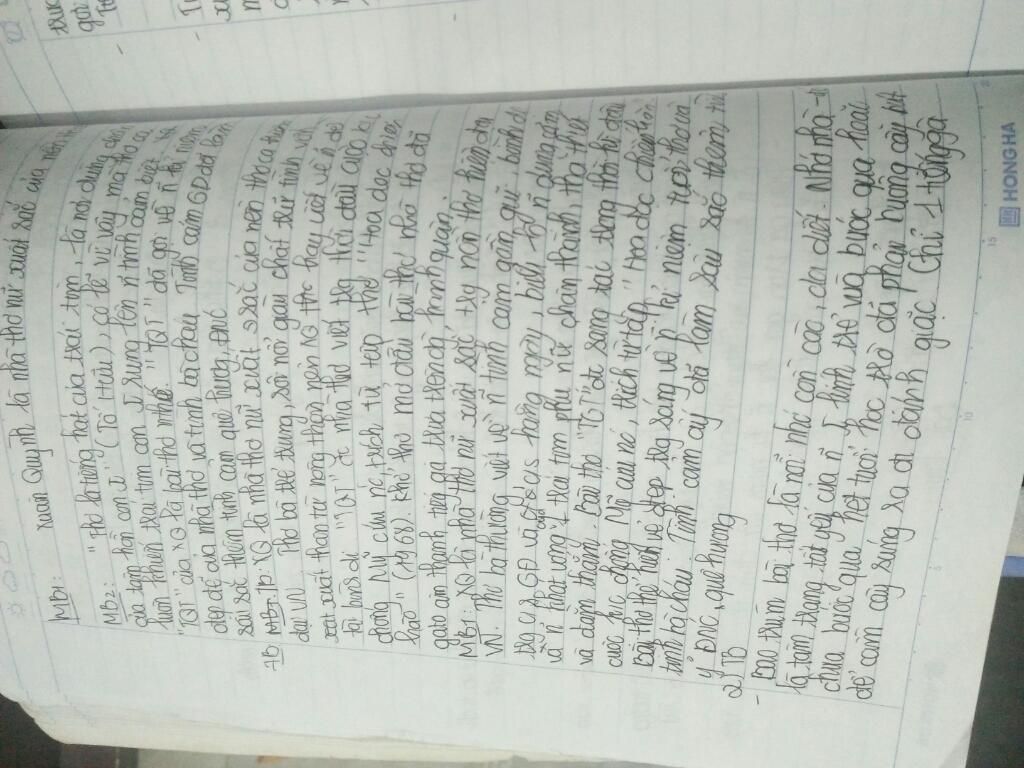 Xuân Quỳnh là nhà thơ nữ xuất sắc của nền
MB1:
MB2: "Thơ là tiếng hát của trái tim - là nơi dừng chân
của tâm hồn con" (Tố Hữu), có lẽ vì vậy mà thơ ca
luôn khiến trái tim con rung lên tình cảm biệt
"TGT" của XQ là bài thơ như thế. "TGT" đã gợi về kỉ niệm
đẹp đẽ của nhà thơ và tình bà cháu. Tình cảm GĐ đã làm
sâu sắc thêm tình cảm quê hương, đnc
MB: XQ là nhà thơ nữ xuất sắc của nền thơ ca hiện
đại VN. Thơ bà trẻ trung, sôi nổi giàu chất trữ tình vốn
xuất thân từ nông thôn nên XQ thc hay viết về đề
tài bình dị "TGT" đc nhà thơ viết tg thời đầu cuộc k/c
chống Mỹ cứu nc trích từ tập thơ "Hoa dọc chiến
hào" (1968). Khổ thơ mở đầu bài thơ nhà thơ đã
gato âm thanh tiếng gà trưa trên đg hành quân.
MB1: XQ là nhà thơ nữ xuất sắc tg nền thơ hiện đại
VN. Thơ bà thường viết về tình cảm gần gũi, bình dị
tg c/s GĐ và c/s hằng ngày, biểu lộ rung cảm
và khát vọng trái tim phụ nữ chân thành, tha thiết
và đằm thắm. Bài thơ "TGT" đc sáng tác trong thời kỳ đầu
cuộc k/c chống Mỹ cứu nc, trích từ tập "Hoa dọc chiến hào"
Bài thơ thể hiện vẻ đẹp tg sáng về kỉ niệm tuổi thơ và
tình bà cháu. Tình cảm ấy đã làm sâu sắc thêm t/c
y đnc, quê hương
2) TB
- Bao trùm bài thơ là nỗi nhớ cồn cào, da diết. Nhớ nhà -
là tâm trạng tất yếu của lính trẻ vừa bước qua hoài
chưa bước qua hết tuổi học trò đã phải buông cây bút
để cầm cây súng ra đi đánh giặc. Chỉ 1 tiếng gà
HONG HA